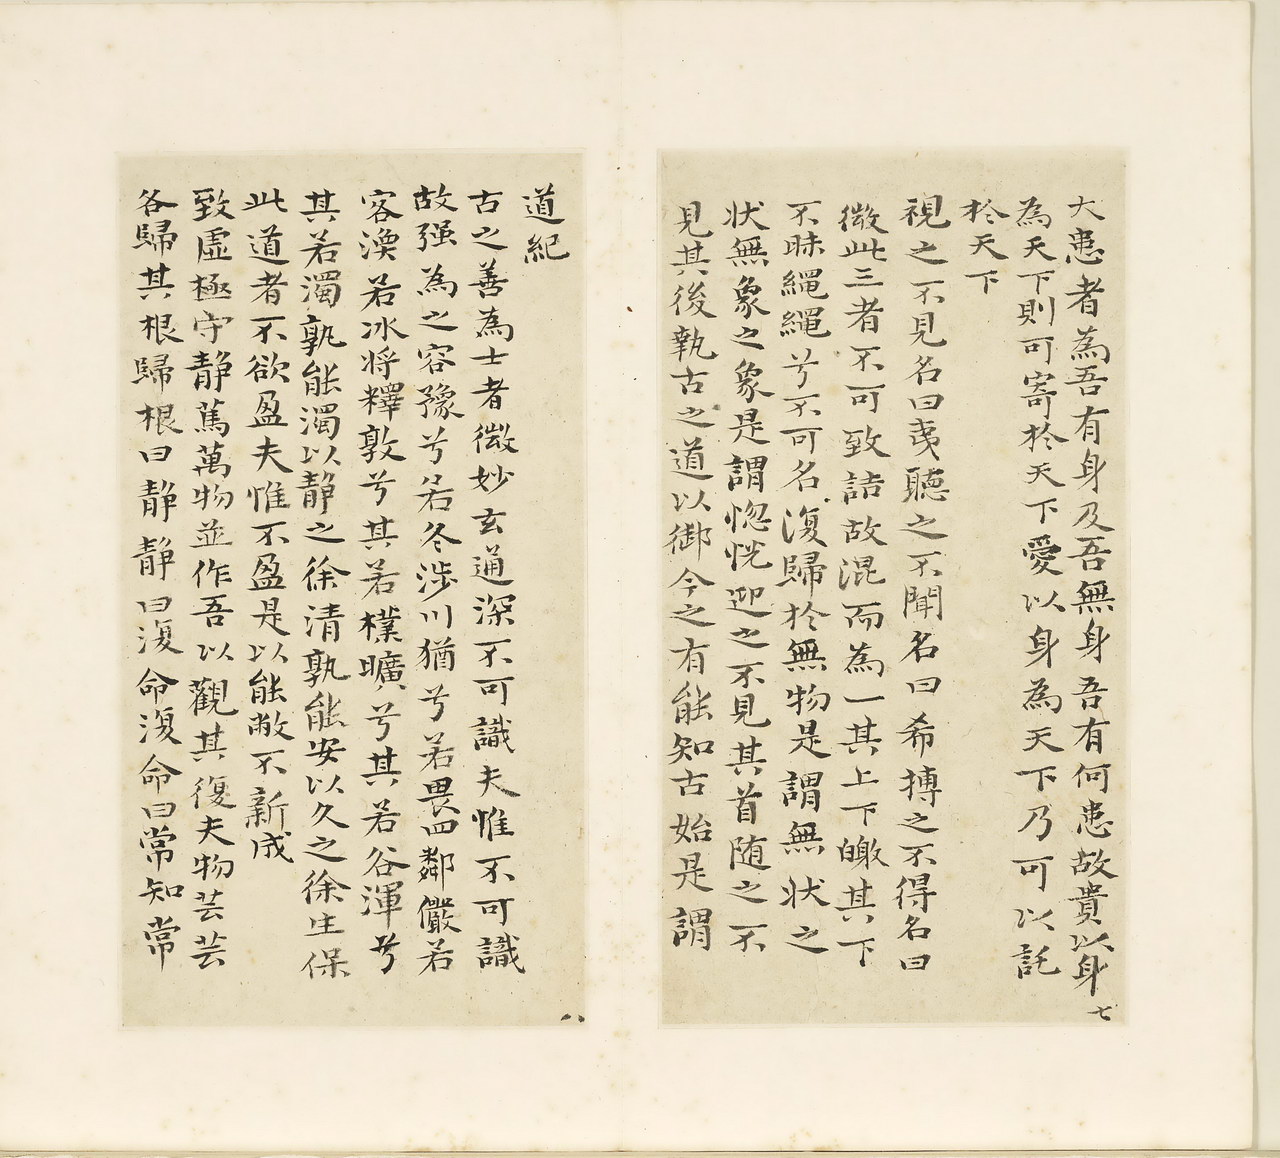 大患者為吾有身及吾無身吾有何患故貴以身
為天下則可寄於天下愛以身為天下乃可以託
於天下
視之不見名曰夷聽之不聞名曰希搏之不得名曰
微此三者不可致詰故混而為一其上下皦其下
不昧繩繩兮不可名復歸於無物是謂無狀之
狀無象之象是謂惚恍迎之不見其首随之不
見其後執古之道以御今之有能知古始是謂
七
道紀
古之善為士者微妙玄通深不可識夫惟不可識
故强為之容豫兮若冬涉川猶兮若畏四鄰儼若
客渙若冰将釋敦兮其若樸曠兮其若谷渾兮
其若濁孰能濁以靜之徐清孰能安以久之徐生保
此道者不欲盈夫惟不盈是以能敝不新成
致虛極守靜篤萬物並作吾以觀其復夫物芸芸
各歸其根歸根曰靜靜曰復命復命曰常知常
八